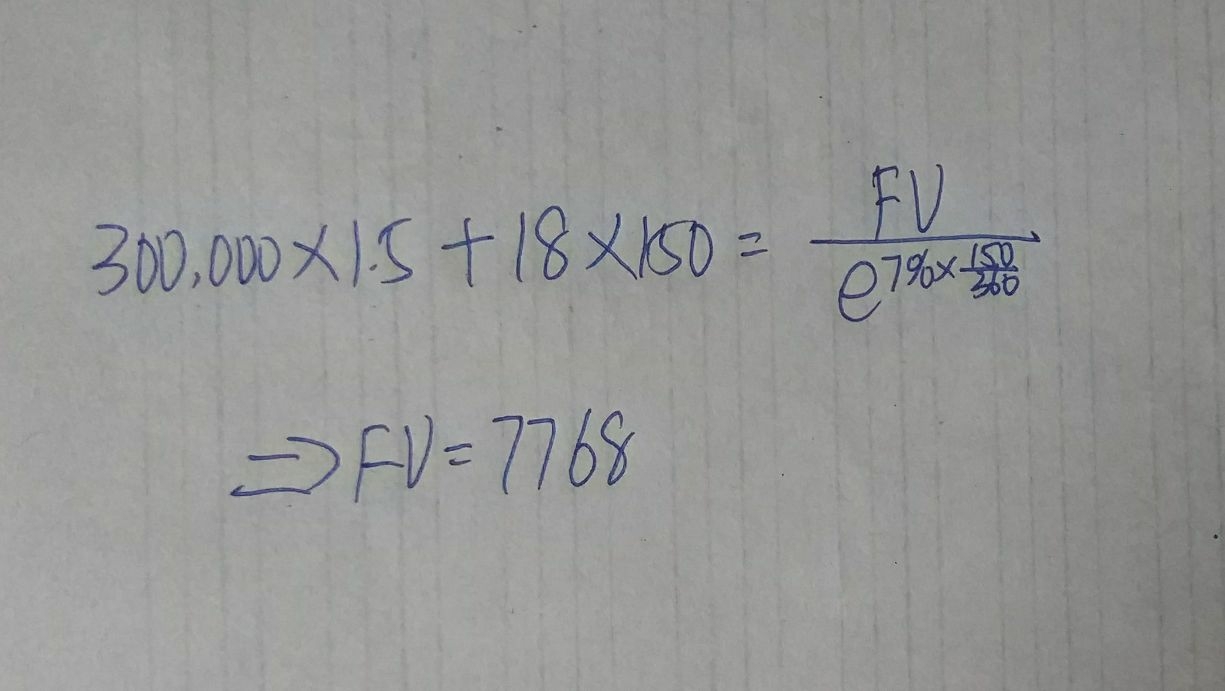 300,000×1.5+18×150=FV/e^7%×150/360
⇒FV=7768